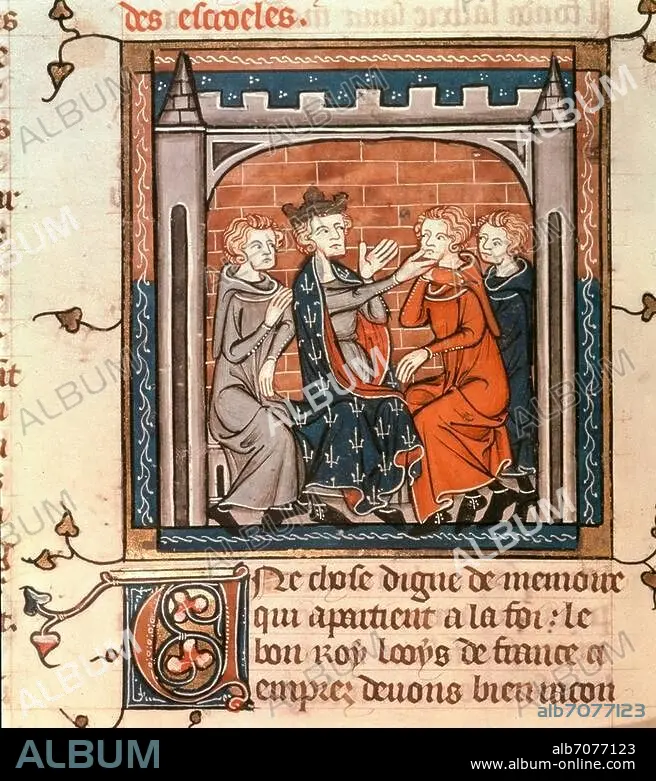 des escroeles.
Une chose digne de memoire
qui apartient a la foi : le
bon Roy Looys de france
empres devons bien
ALBUM
alb7077123
ALBUM
alb7077123
www.album-online.com